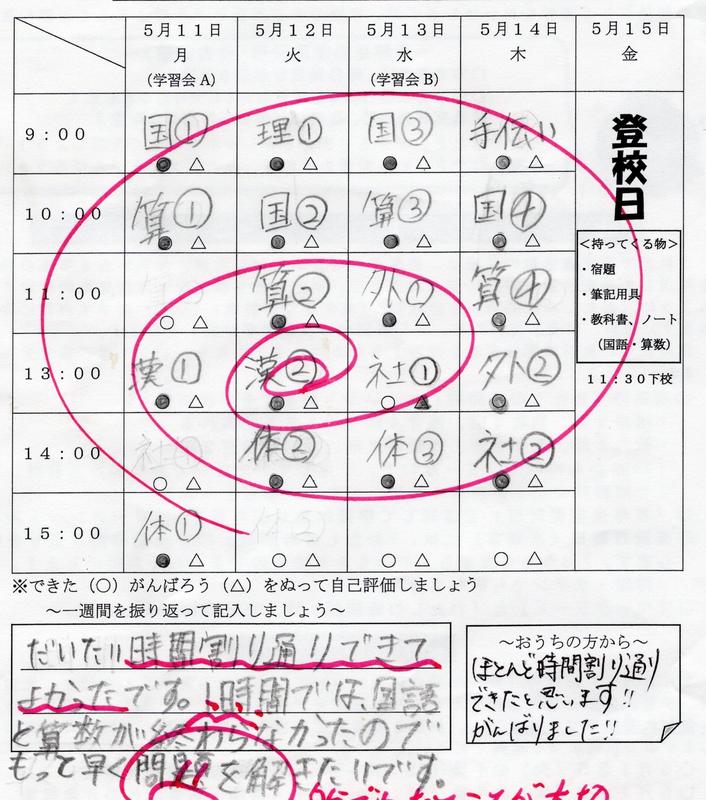 5月11日 5月12日 5月13日 5月14日 5月15日
月 火 水 木 金
(学習会A) (学習会B)
9:00 国① 理① 国③ 手伝い
○ △ ○ △ ○ △ ○ △
登校日
10:00 算① 国② 算③ 国④
○ △ ○ △ ○ △ ○ △
<持ってくる物>
・宿題
・筆記用具
・教科書、ノート
(国語・算数)
11:30下校
11:00 算② 外① 算④
○ △ ○ △ ○ △ ○ △
13:00 漢① 漢② 社① 外②
○ △ ○ △ ○ △ ○ △
14:00 社① 体② 体③ 社②
○ △ ○ △ ○ △ ○ △
15:00 体①
○ △ ○ △ ○ △ ○ △
※できた(○)がんばろう(△)をぬって自己評価しましょう
~一週間を振り返って記入しましょう~
だいたい時間割り通りできて
よかったです。1時間では、国語
と算数が終わらなかったので
もっと早く問題を解きたいです。
~おうちの方から~
ほとんど時間割り通り
できたと思います!!
がんばりました!!